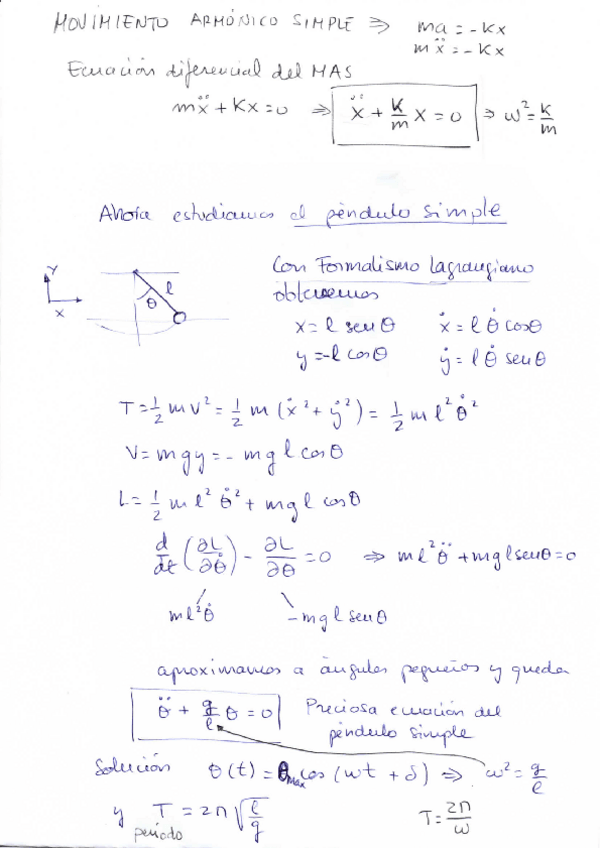 MOVIMIENTO ARMÓNICO SIMPLE ⇒ ma = -Kx
mẍ = -Kx
Ecuación diferencial del MAS
mẍ + Kx = 0 ⇒ ẍ + K/m x = 0 ⇒ ω² = K/m
Ahora estudiamos el péndulo simple
Con Formalismo Lagrangiano
obtenemos
Y
X
θ
l
x = l senθ ẋ = l θ̇ cosθ
y = -l cosθ ẏ = l θ̇ senθ
T = 1/2 m v² = 1/2 m (ẋ² + ẏ²) = 1/2 m l² θ̇²
V = mgy = - mg l cosθ
L = 1/2 m l² θ̇² + mg l cosθ
d/dt (∂L/∂θ̇) - ∂L/∂θ = 0 ⇒ ml² θ̈ + mg l senθ = 0
ml²θ̇ -mg l senθ
aproximamos a ángulos pequeños y queda
θ̈ + g/l θ = 0 Preciosa ecuación del
péndulo simple
Solución θ(t) = θmax cos (ωt + δ) ⇒ ω² = g/l
y T = 2π √(l/g) T = 2π/ω
período